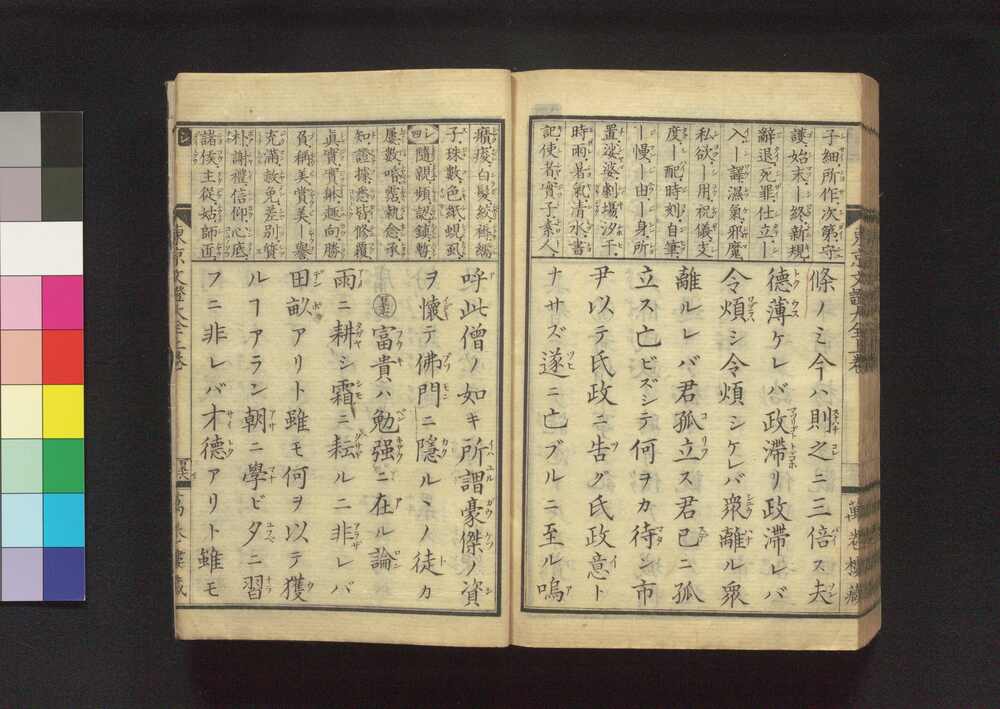 子細所作次第守
護始末ー終新規
辭退死罪仕立ー
入ー譯濕氣邪魔
私欲ー用祝儀支
度ー配時刻自筆
ー慢ー由ー身所
置娑婆劇場汐干
時雨暑氣清水書
記使者實子素人
條ノミ今ハ則之ニ三倍ス夫
德薄ケレバ政滯リ政滯レバ
令煩シ令煩シケレバ衆離ル衆
離ルレバ君孤立ス君已ニ孤
立ス亡ビズシテ何ヲカ待ン市
尹以テ氏政ニ告グ氏政意ト
ナサズ遂ニ亡ブルニ至ル嗚
萬卷樓藏
癪痰白髮皺
子珠數色紙蜆虱
四
隨親頻認鎮暫
屢數啗霑執愈承
知證據悉皆修覆
眞實實緋趣向勝
負稱美賞美ー譽
充滿赦免差別質
朴謝禮信仰心底
諸侯主從姑師匠
呼此僧ノ如キ所謂豪傑ノ資
ヲ懷テ佛門ニ隱ルヽノ徒カ
富貴ハ勉强ニ在ル論
雨ニ耕シ霜ニ耘ルニ非レバ
田畝アリト雖モ何ヲ以テ獲
ルヿアラン朝ニ學ビ夕ニ習
フニ非レバ才德アリト雖モ
東京文證大全上卷
萬卷樓藏